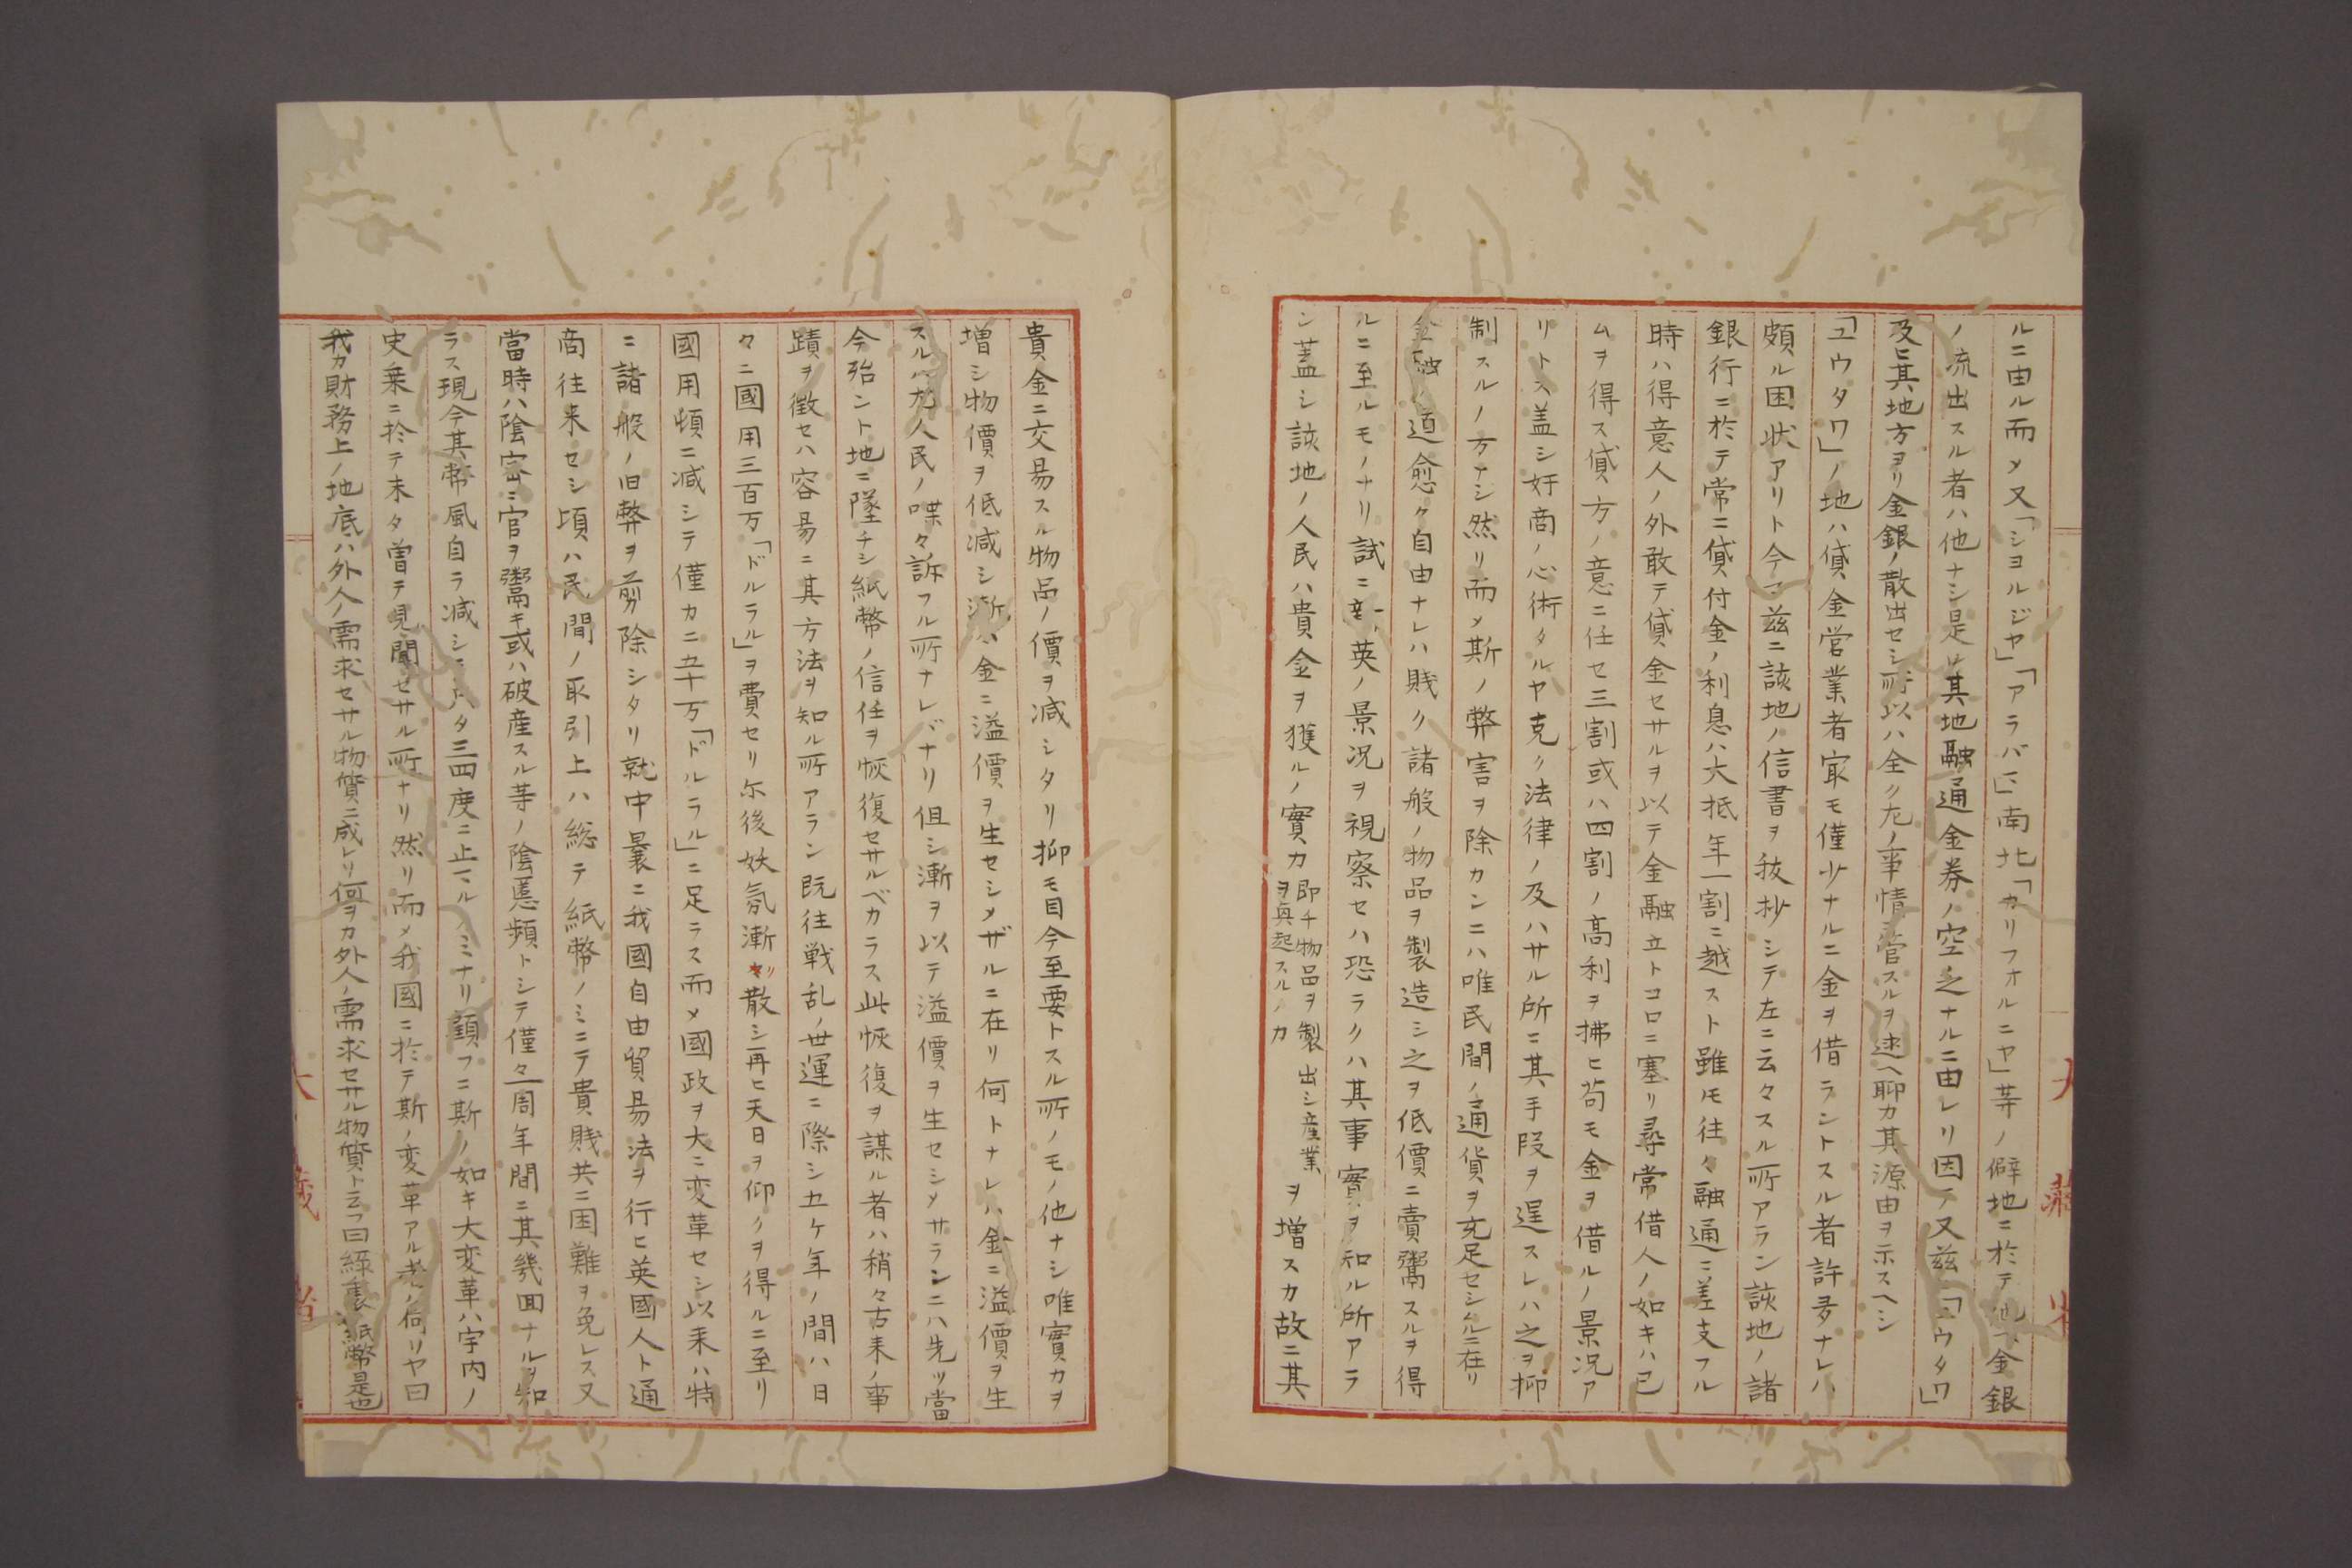 ルニ由ル而メ又「シヨルジヤ」「アラバマ」南北「カリフオルニヤ」等ノ僻地ニ於テ他ヘ金銀
ノ流出スル者ハ他ナシ是レ其地融通金券ノ空乏ナルニ由レリ因テ又茲ニ「ユウタワ」
及ヒ其地方ヨリ金銀ノ散出セシ所以ハ全ク左ノ事情ニ管スルヲ述ヘ聊カ其源由ヲ示スヘシ
「ユウタワ」ノ地ハ貸金営業者寔モ僅少ナルニ金ヲ借ラントスル者許多ナレハ
頗ル困状アリト今マ茲ニ該地ノ信書ヲ抜抄シテ左ニ云々スル所アラン該地ノ諸
銀行ニ於テ常ニ貸付金ノ利息ハ大抵年一割ニ越スト雖モ往々融通ニ差支フル
時ハ得意人ノ外敢テ貸金セサルヲ以テ金融立トコロニ塞リ尋常借人ノ如キハ已
ムヲ得ス貸方ノ意ニ任セ三割或ハ四割ノ高利ヲ拂ヒ苟モ金ヲ借ルノ景况ア
リトス盖シ奸商ノ心術タルヤ克ク法律ノ及ハサル所ニ其手段ヲ逞スレハ之ヲ抑
制スルノ方ナシ然リ而メ斯ノ弊害ヲ除カンニハ唯民間ノ通貨ヲ充足セシムルニ在リ
金融ノ道愈々自由ナレハ賎ク諸般ノ物品ヲ製造シ之ヲ低價ニ賣鬻スルヲ得
ルニ至ルモノナリ試ニ英ノ景况ヲ視察セハ恐ラクハ其事實ヲ知ル所アラ
ン蓋シ該地ノ人民ハ貴金ヲ獲ルノ實力即チ物品ヲ製出シ産業ヲ興起スルノ力ヲ増スカ故ニ其
貴金ニ交易スル物品ノ價ヲ減シタリ抑モ目今至要トスル所ノモノ他ナシ唯實力ヲ
増シ物價ヲ低減シ漸ハ金ニ溢價ヲ生セシメザルニ在リ何トナレハ金ニ溢價ヲ生
スルハ尤人民ノ喋々訴フル所ナレバナリ但シ漸ヲ以テ溢價ヲ生セシメサランニハ先ツ當
今殆ント地ニ墜チシ紙幣ノ信任ヲ恢復セサルベカラス此恢復ヲ謀ル者ハ稍々古来ノ事
蹟ヲ徴セハ容易ニ其方法ヲ知ル所アラン既往戦乱ノ世運ニ際シ五ケ年ノ間ハ日
々ニ國用三百万「ドルラル」ヲ費セリ尓後妖氛漸リ散シ再ヒ天日ヲ仰クヲ得ルニ至リ
國用頓ニ減シテ僅カニ五十万「ドルラル」ニ足ラス而メ國政ヲ大ニ変革セシ以来ハ特
ニ諸般ノ旧弊ヲ剪除シタリ就中曩ニ我國自由貿易法ヲ行ヒ英國人ト通
商往来セシ頃ハ民間ノ取引上ハ総テ紙幣ノミニテ貴賎共ニ困難ヲ免レス又
當時ハ陰密ニ官ヲ鬻キ或ハ破産スル等ノ陰慝頻トシテ僅々一周年間ニ其幾回ナルヲ知
ラス現今其幣風自ラ減シ三四度ニ止マルノミナリ顧フニ斯ノ如キ大変革ハ宇内ノ
史乗ニ於テ未タ曽テ見聞セサル所ナリ然リ而メ我國ニ於テ斯ノ変革アル者ノ何リヤ曰
我カ財務上ノ地底ハ外人ノ需求セサル物質ニ成レリ何ヲカ外人ノ需求セサル物質ト云フ曰緑裏紙幣是也